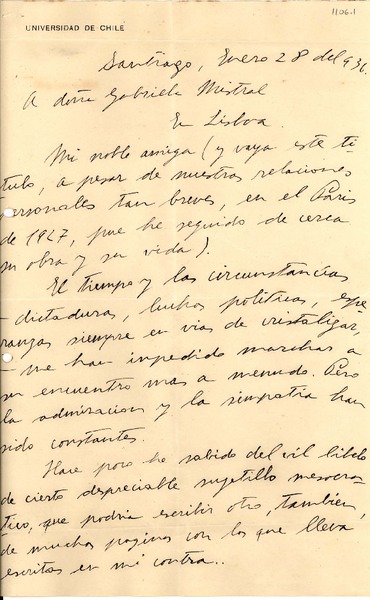 1106.1
UNIVERSIDAD DE CHILE
Santiago, Enero 28 del 936.
A doña Gabriela Mistral
En Lisboa.
Mi noble amiga (y vaya este tí-
tulo, a pesar de nuestras relaciones
personales tan breves, en el Paris
de 1927, que he seguido de cerca
su obra y su vida).
El tiempo y las circunstancias
- dictaduras, luchas políticas, espe-
ranzas siempre en vias de cristalizar,
- me han impedido marchar a
su encuentro mas a menudo. Pero
la admiracion y la simpatia han
sido constantes.
Hace poco he sabido del vil libelo
de cierto despreciable sujetillo mesocra-
tico, que podria escribir otro, tambien,
de muchas paginas con los que lleva
escritos en mi contra..